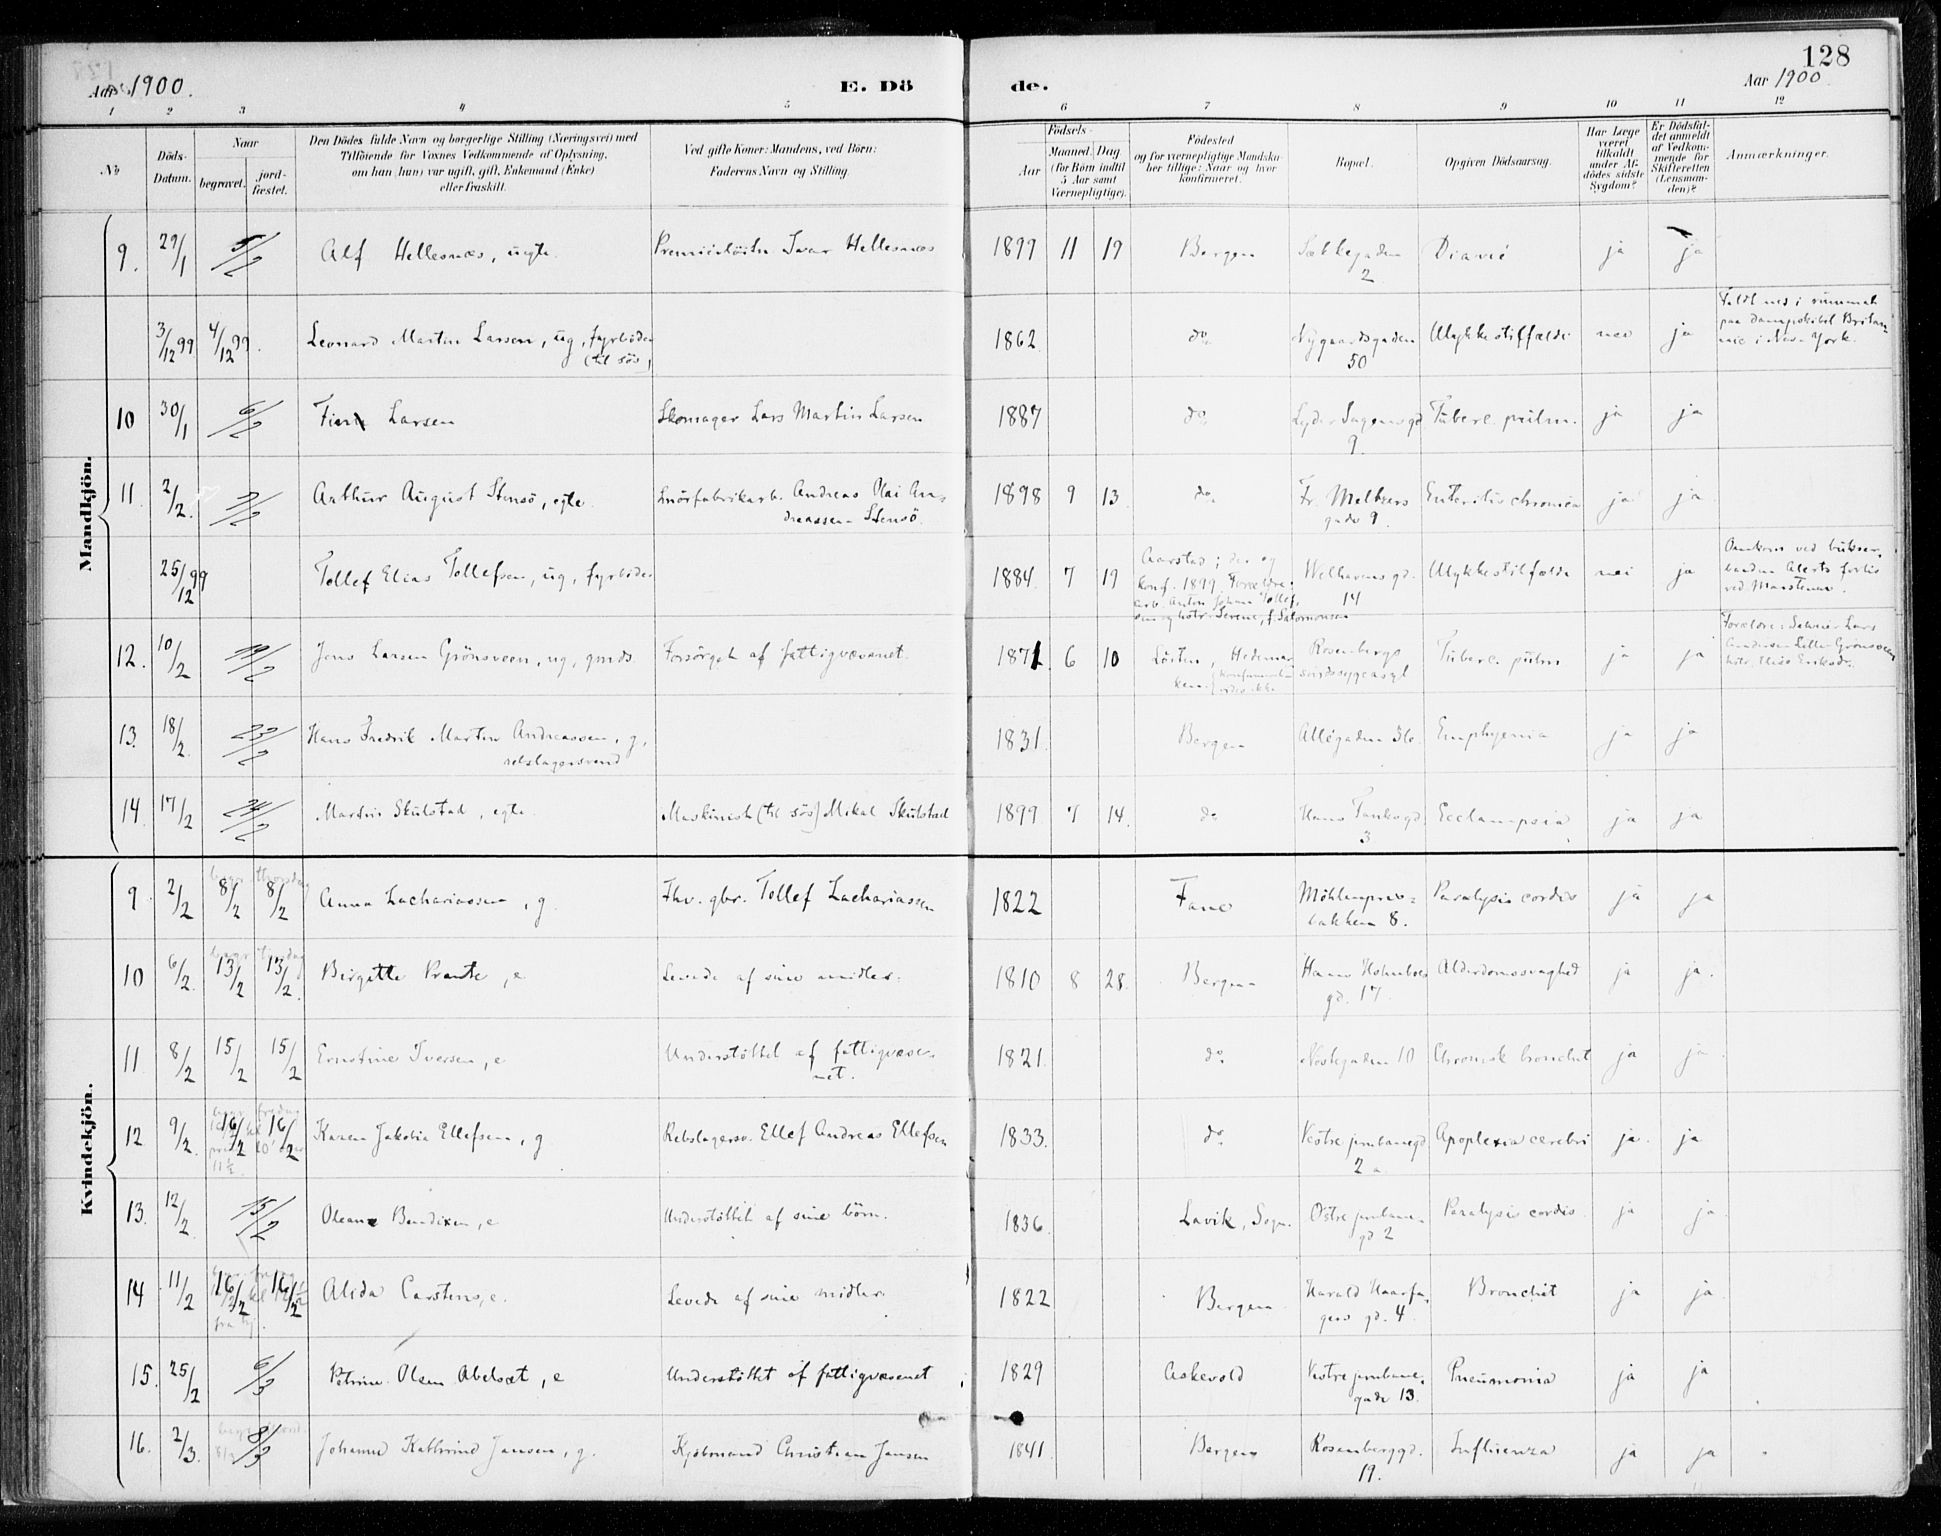 128
Aar 1900.
E. Dö
de.
Aar 1900
1 2 3 4 5 6 7 8 9 10 11 12
№
Döds-Datum.
Naar
begravet.
jordfæstet.
Den Dödes fulde Navn og borgerlige Stilling (Næringsvei) med
Tilföiende for Voxnes Vedkommende af Oplysning,
om han (hun) var ugift, gift, Enkemand (Enke)
eller fraskilt.
Ved gifte Koner: Mandens, ved Börn:
Faderens Navn og Stilling.
Födsels-
Aar
Maaned. Dag
(for Börn indtil
5 Aar samt
Værnepligtige).
Födested
og for værnepligtige Mandskaber tillige: Naar og hvor
konfirmeret.
Bopæl.
Opgiven Dödsaarsag.
Har Læge
været
tilkaldt
under Afdödes sidste
Sygdom?
Er Dödsfaldet anmeldt
af Vedkommende for
Skifteretten
(Lensmanden)?
Anmærkninger.
Mandkjön.
9. 29/1 5/2 Alf Hellesnæs, uegte. Premierlöitn. Ivar Hellesnæs 1899 11 19 Bergen Sækkegaden 2 ja ja
3/12 99 4/12 99. Leonard Martin Larsen, ug, fyrböder (til sös) 1862 do Nygaardsgaden 50 Ulykkestilfælde nei ja Faldt ned i rummet
paa dampskibet Britannic i New-York.
10 30/1 6/2 Finn Larsen Skomager Lars Martin Larsen 1887 do Lyder Sagensgd 9. Tuberc. pulm. ja ja
11. 2/2. 7/2 Arthur August Stensö, egte. Snörfabrikarb. Andreas Olai Andreassen Stensö. 1898 9 13. do Fr. Meltzers gade 9. Enteritis chronica ja ja
25/12 99 Tollef Elias Tollefsen, ug, fyrböder 1884 7 19 Aarstad; der og
konf. 1899. Forældre:
arb. Anton Johan Tollefsen og hstr. Serene, f. Salomonsen Welhavensgd. 14 Ulykkestilfælde nei ja Omkom ved forlis
ved Marstenen.
12. 10/2 19/2 Jens Larsen Grönsveen, ug, gmds. Forsörget af fattigvæsenet. 1871 6 10 Löiten, Hedemarken. Rosenbergs Tuberc. pulm ja ja Forældre: Lars
13. 18/2. 23/2 Hans Fredrik Martin Andreassen, g, rebslagersvend 1831. Bergen Allégaden ja ja
14. 17/2 24/2 Martin Skulstad, egte. Maskinist (til sös) Mikal Skulstad 1899 7 14. do Hans Tanksgd. 3 Ecclampsia ja ja
Kvindekjön.
9. 2/2 8/2 8/2 Anna Zachariassen, g. Fhv. gbr. Tollef Zachariassen 1822 Fane Möhlenprisbakken 8. Paralysis cordis ja ja
10 6/2. 13/2 13/2. Birgitte Prante, e Levede af sine midler. 1810 8 28. Bergen Hans Holmboesgd. 17 Alderdomssvaghed ja ja.
11. 8/2 15/2 15/2 Ernstine Iversen, e Understöttet af fattigvæsenet. 1821. do Nöstegaden 10 Chronisk bronchit ja ja
12 9/2. 16/2 16/2 Karen Jakobia Ellefsen, g Rebslagersv. Ellef Andreas Ellefsen 1833. do Vestre jernbanegd 2 a Apoplexia cerebri ja. ja
13. 12/2. 15/2 Oleane Bendixen, e Understöttet af sine börn. 1836 Lavik, Sogn. Östre jernbanegd 2 Paralysis cordis ja ja.
14 11/2 16/2 16/2 Alida Carstens, e. Levede af sine midler. 1822 Bergen Harald Haarfagers gd. 4 Bronchit ja ja
15. 25/2 6/3 Petrine Olsen Abelset, e Understöttet af fattigvæsenet 1829 Askevold Vestre jernbanegade 13. Pneumonia ja ja
16. 2/3. 8/3 Johanne Kathrine Jansen, g. Kjöbmand Christian Jansen 1841. Bergen Rosenberggd. 19. Influenza ja ja